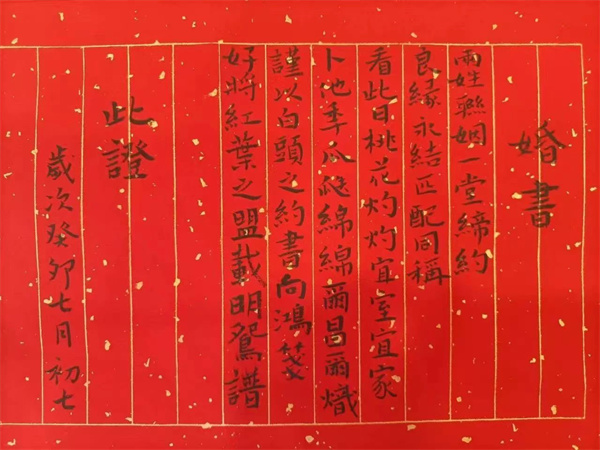 婚書
兩姓聯姻一堂締約
良緣永結匹配同稱
看此日桃花灼灼宜室宜家
卜他年瓜瓞綿綿爾昌爾熾
謹以白頭之約書向鴻箋
好將紅葉之盟載明鴛譜
此證
歲次癸卯七月初七